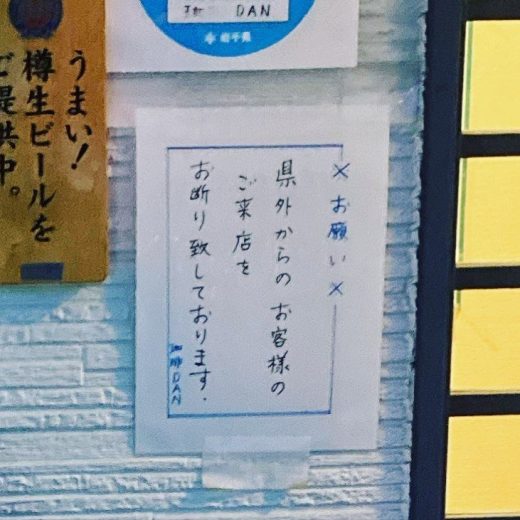 DAN
岩手県
うまい!
樽生ビールを
ご提供中。
×お願い×
県外からのお客様の
ご来店を
お断り致しております.
珈琲DAN